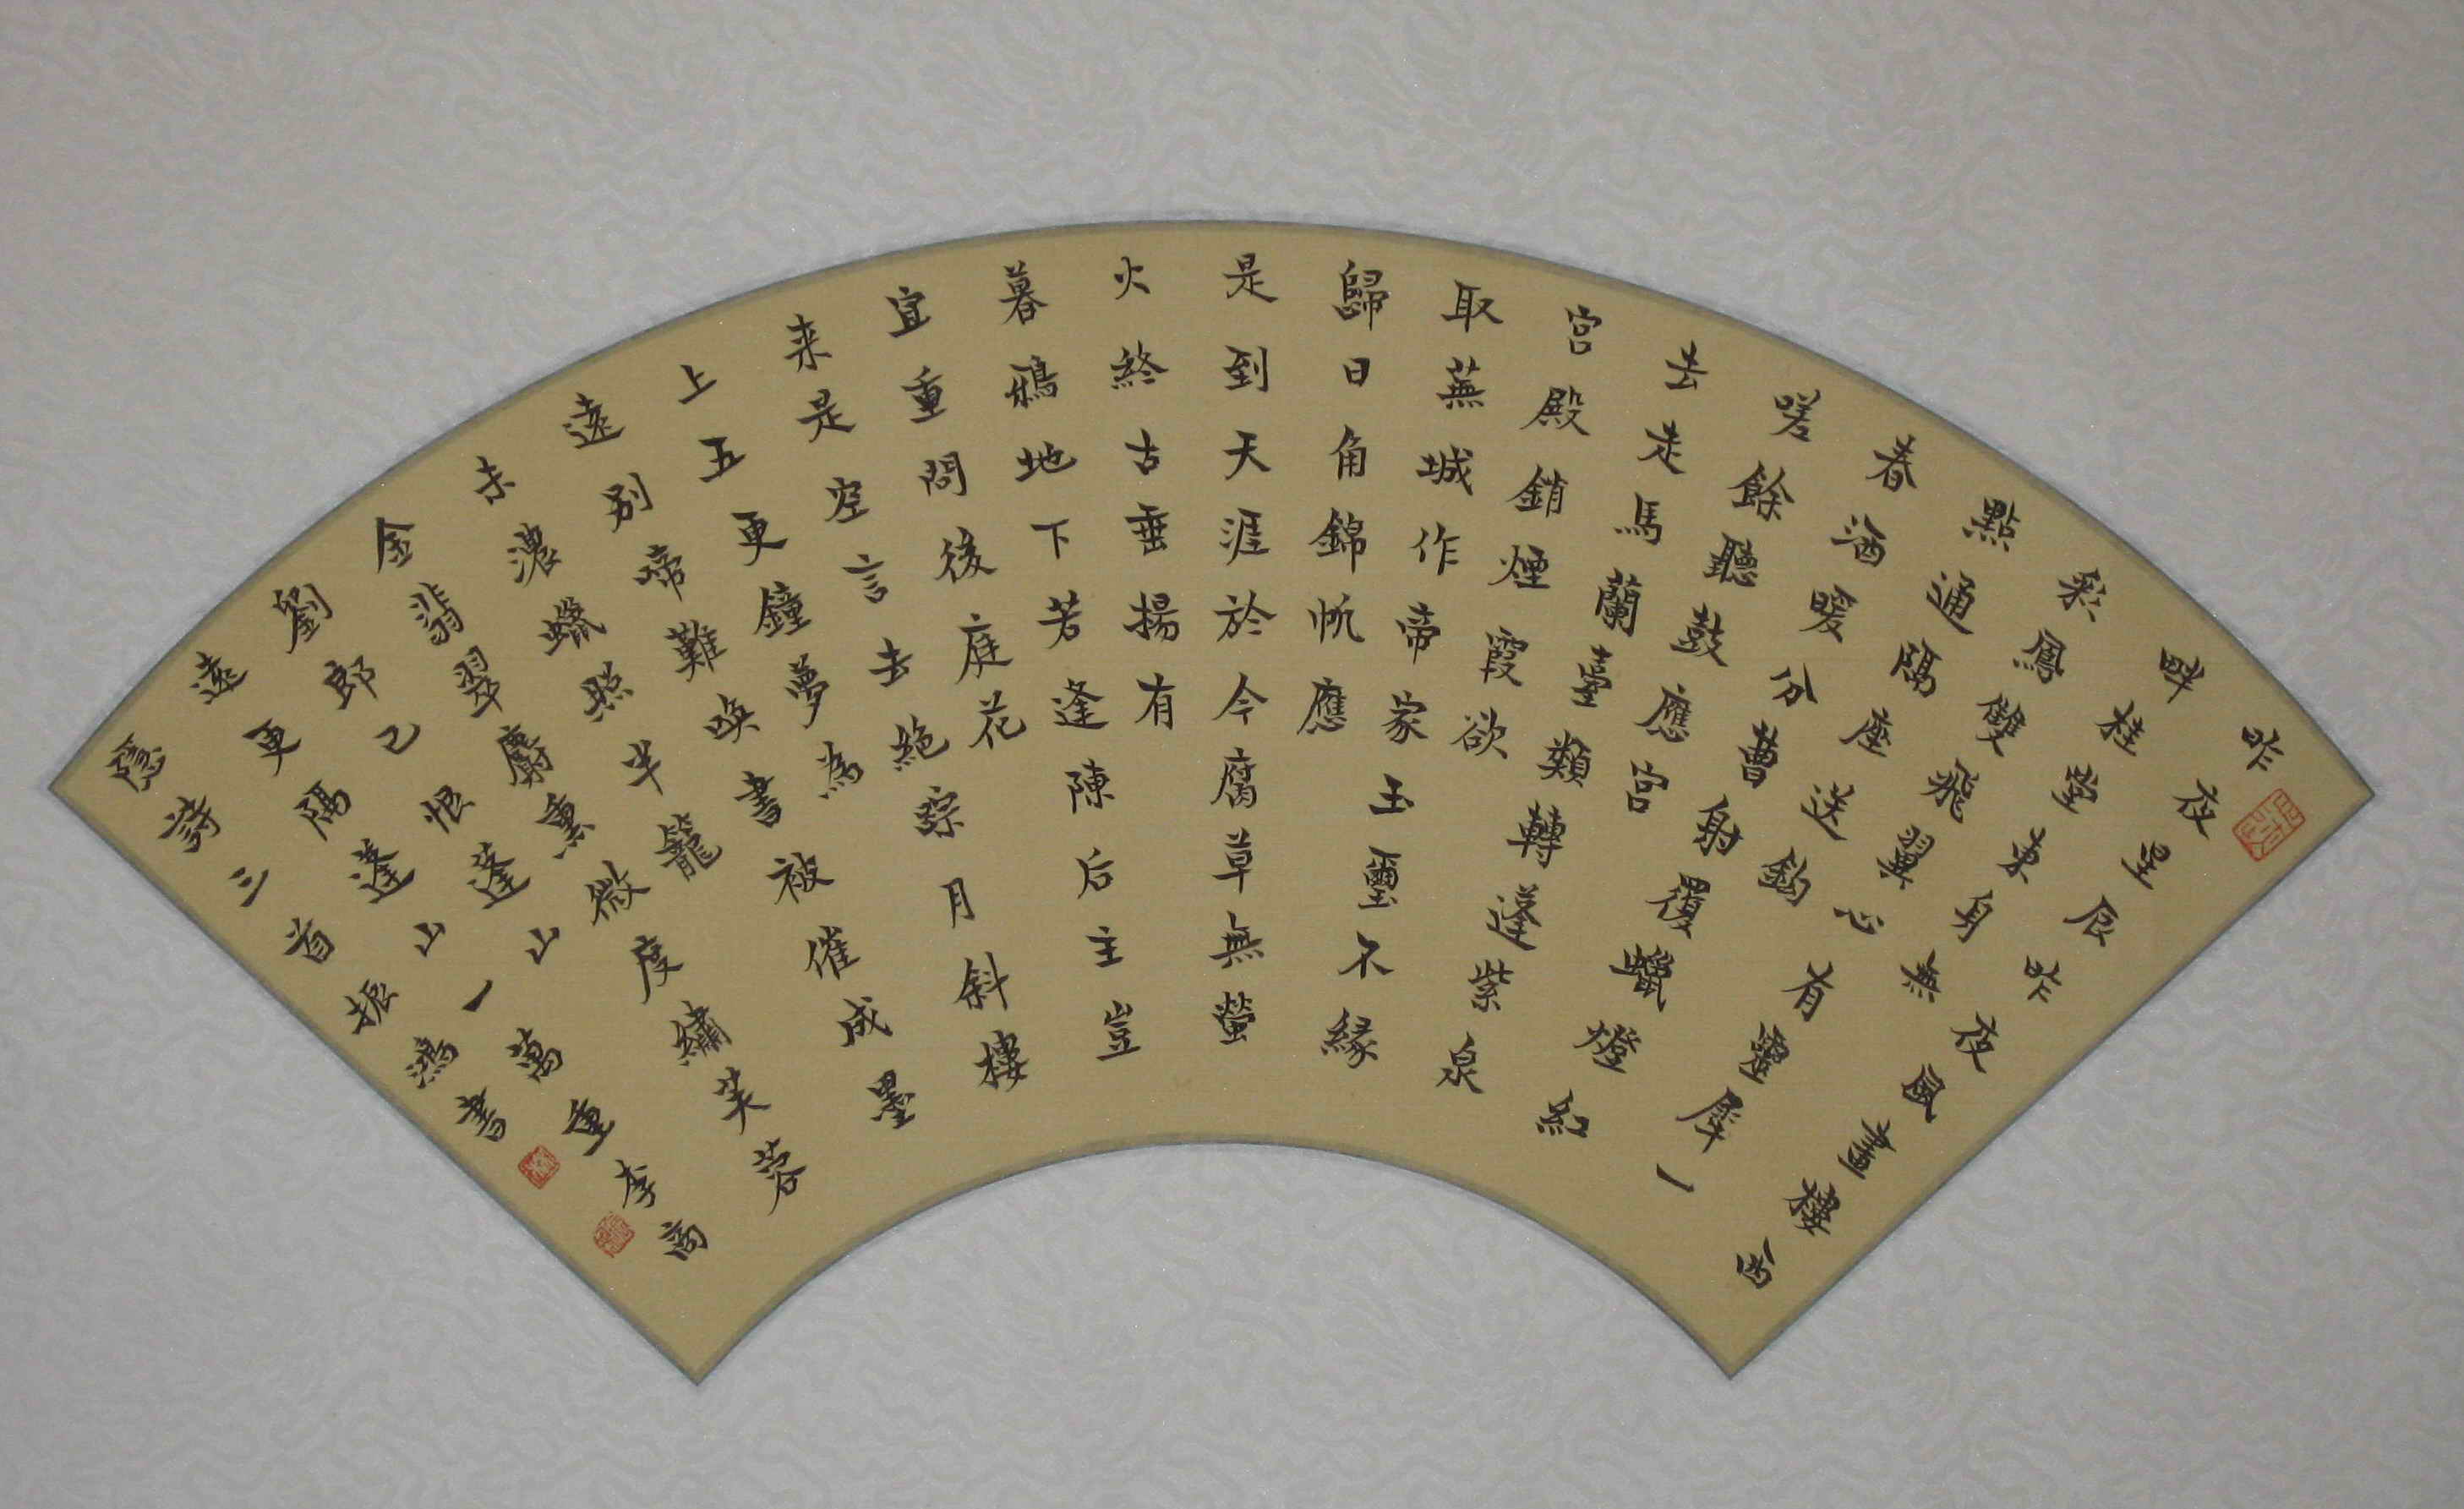 昨夜星辰昨夜風畫樓西
畔桂堂東身無
彩鳳雙飛翼心有靈犀一
點通隔座送鈎
春酒暖分曹射覆蠟燈紅
嗟餘聽鼓應宮
去走馬蘭臺類轉蓬紫泉
宮殿銷煙霞欲
取蕪城作帝家玉璽不緣
歸日角錦帆應
是到天涯於今腐草無螢
火終古垂揚有
暮鴉地下若逢陳后主豈
宜重問後庭花
来是空言去絕踪月斜樓
上五更鐘夢為
遠別啼難喚書被催成墨
未濃蠟照半籠
金翡翠麝熏微度繡芙蓉
劉郎已恨蓬山
遠更隔蓬山一萬重李商
隱詩三首振鴻書